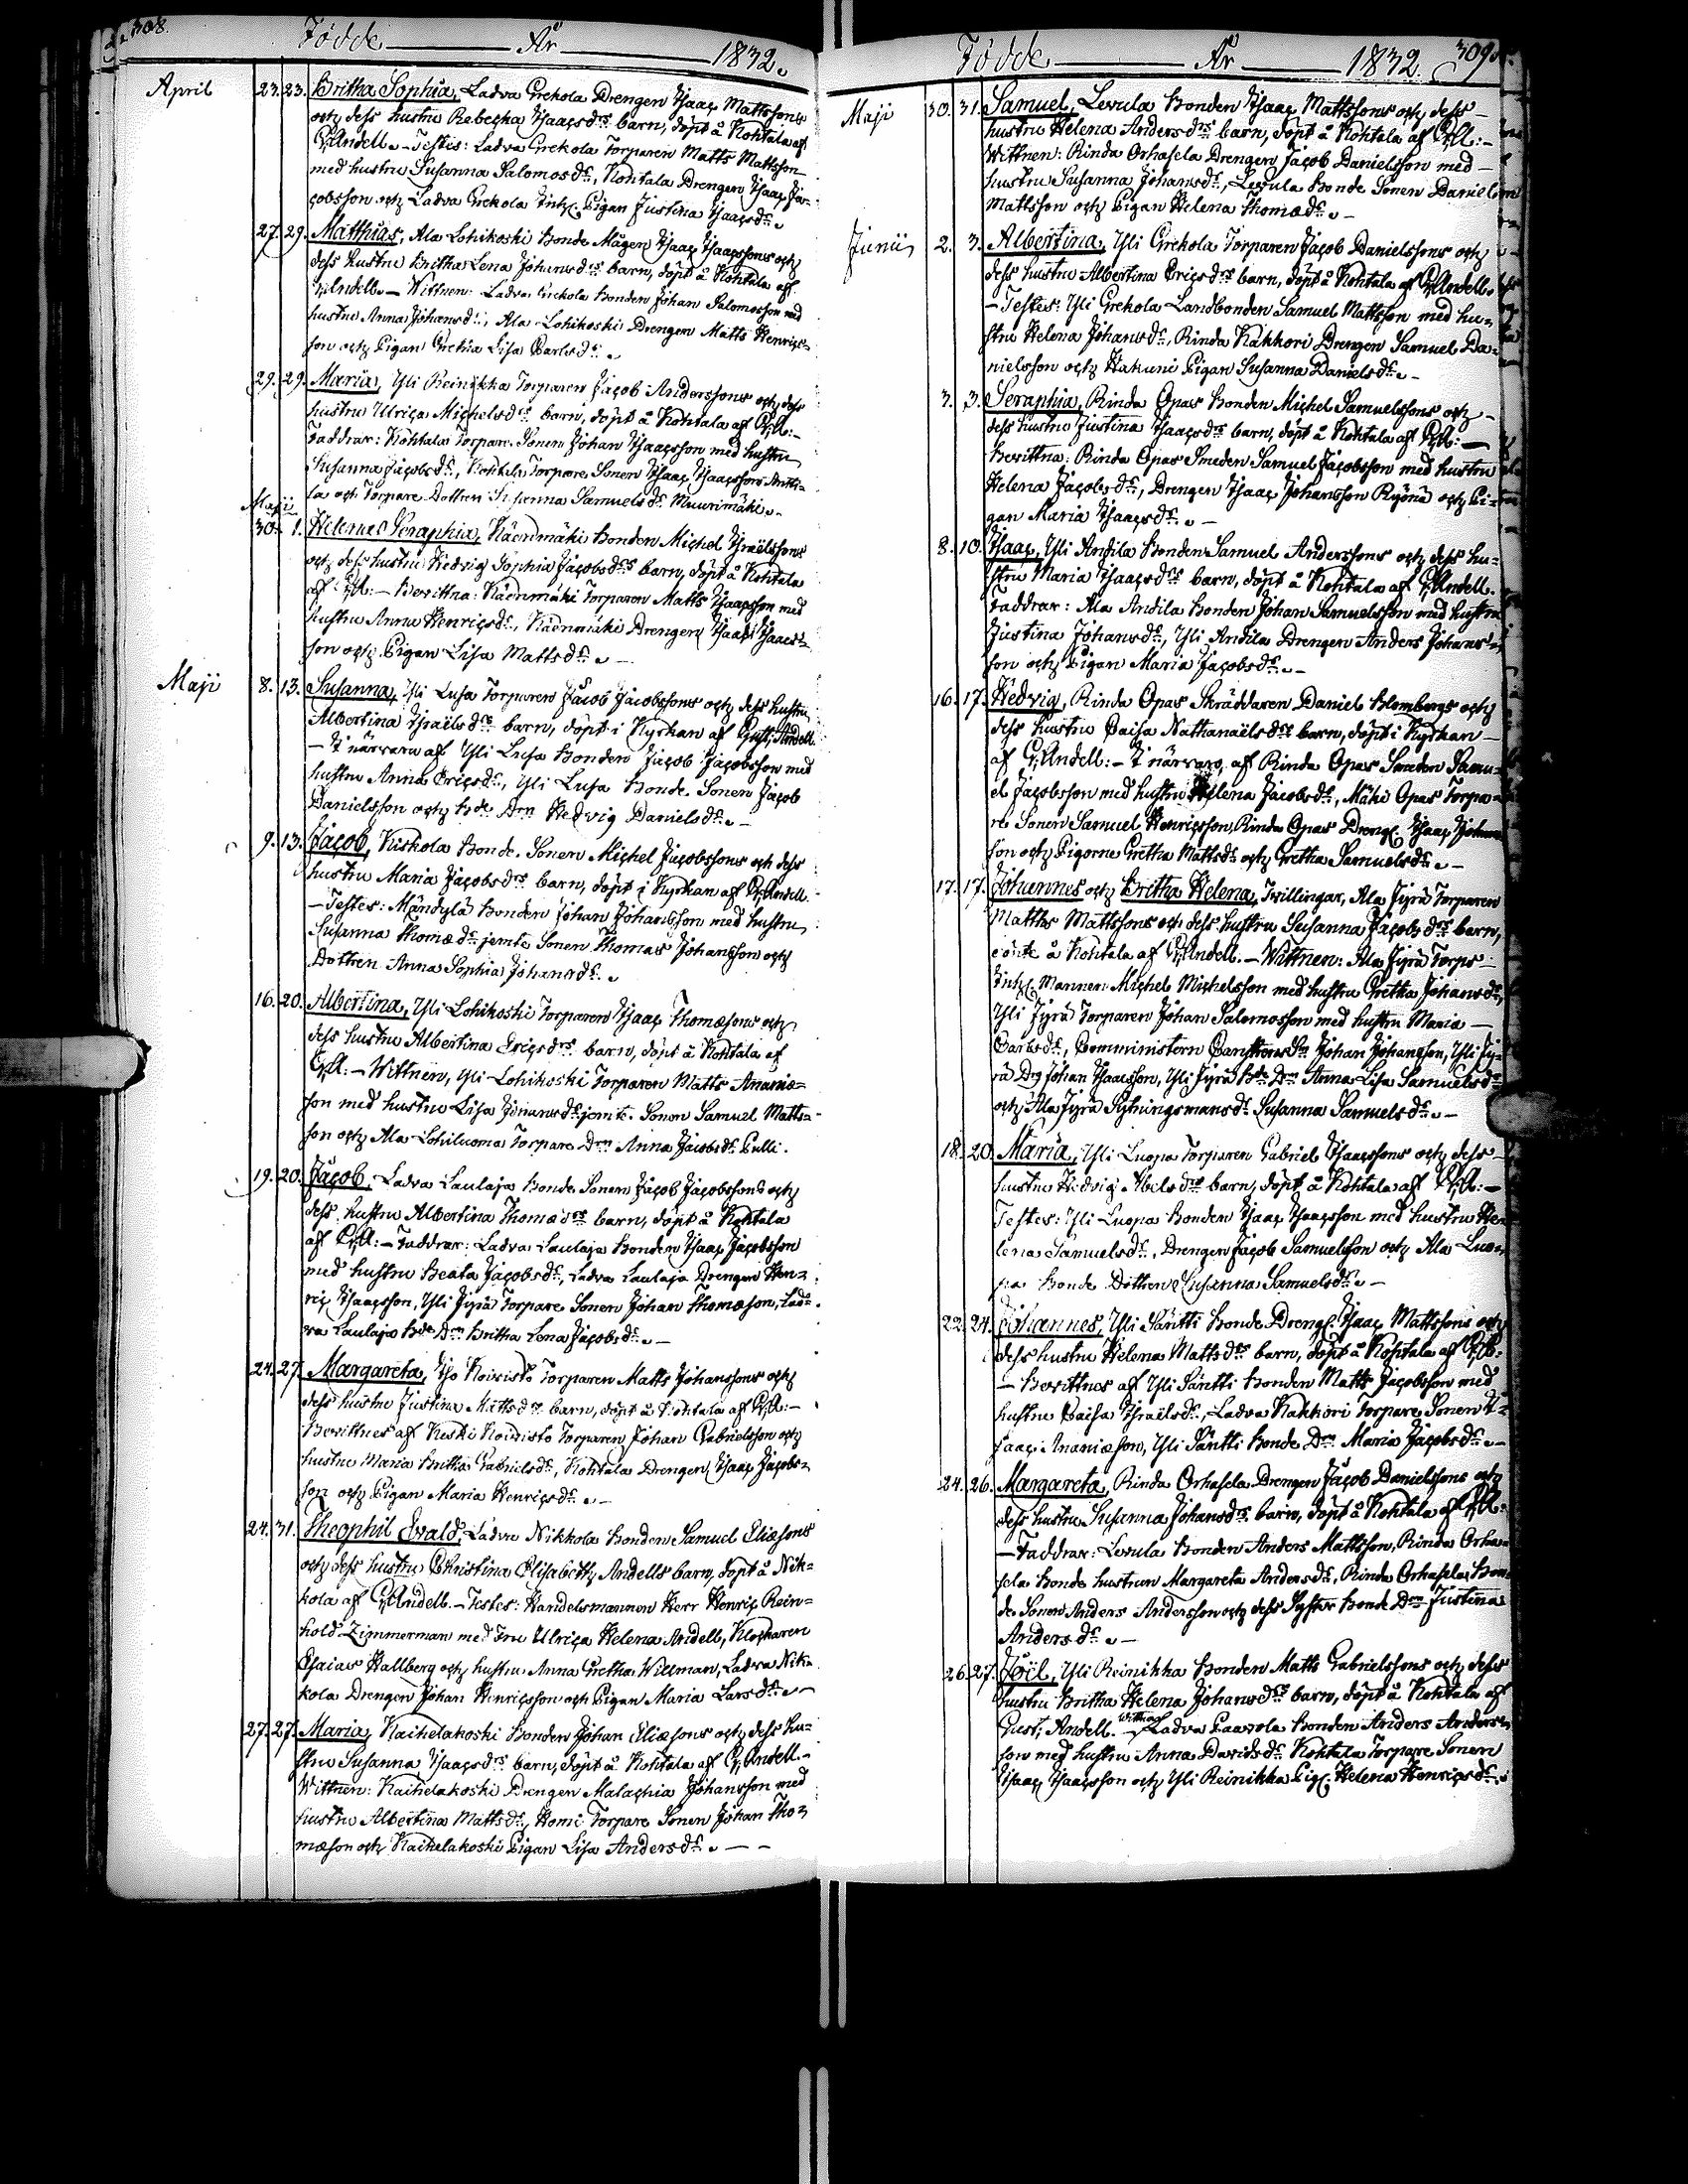 308.
Födde År 1832.
April 23. 23. Britha Sophia, Ladva Grekola Drengen Isaac Mattssons
och dess hustru Rebecka Isaacsdrs barn, döpt å Kohtala af
G. Andell. – Testis: Ladva Grekola Torparen Matts Mattsson
med hustru Susanna Salomosdr, Kohtala Drengen Isaac Ja-
cobsson och Ladva Grekola Inh. Pigan Justina Isaacsdr.
27. 29. Matthias, Ala Lohikoski Bonde Mågen Isaac Isaacssons och
dess hustru Britha Lena Johansdrs barn, döpt å Kohtala af
G. Andell. – Wittnen: Ladva Grekola Bonden Johan Salomosson med
hustru Anna Johansdr, Ala Lohikoski Drengen Matts Henrics-
son och Pigan Gretha Lisa Carlsdr.
29. 29. Maria, Yli Reinikka Torparen Jacob Anderssons och dess
hustru Ulrica Michelsdrs barn, döpt å Kohtala af G. A: –
Faddrar: Kohtala Torpare Sonen Johan Isaacsson med hustru
Susanna Jacobsdr, Kohtala Torpare Sonen Isaac Isaacsson Antti-
la och Torpare Dottren Susanna Samuelsdr Muurimäki. –
Maji
30. 1. Helena Seraphia, Käenmäki Bonden Michel Israëlssons
och dess hustru Hedvig Sophia Jacobsdrs barn, döpt å Kohtala
af G. A: – Bevittna: Käenmäki Torparen Matts Isaacsson med
hustru Anna Henricsdr, Käenmäki Drengen Isaac Isaacs-
son och Pigan Lisa Mattsdr. –
Maji 8. 13. Susanna, Yli Lusa Torparen Jacob Jacobssons och dess hustru
Albertina Israëlsdrs barn, döpt i Kyrkan af Gust; Andell.
– I närvaro af Yli Lusa Bonden Jacob Jacobsson med
hustru Anna Ericsdr, Yli Lusa Bonde Sonen Jacob
Danielsson och Bde Drn Hedvig Danielsdr. –
9. 13. Jacob, Kiskola Bonde Sonen Michel Jacobssons och dess
hustru Maria Jacobsdrs barn, döpt i Kyrkan af G. Andell.
– Testes: Mändylä Bonden Johan Johansson med hustru
Susanna Thomædr jemte Sonen Thomas Johansson och
Dottren Anna Sophia Johansdr.
16. 20. Albertina, Yli Lohikoski Torparen Isaac Thomæsons och
dess hustru Albertina Ericsdrs barn, döpt å Kohtala af
G. A: – Wittnen, Yli Lohikoski Torparen Matts Ananiæ-
son med hustru Lisa Johansdr jemte Sonen Samuel Matts-
son och Ala Lohiluoma Torpare Drn Anna Jacobsdr Pulli.
19. 20. Jacob, Ladva Laulaja Bonde Sonen Jacob Jacobssons och
dess hustru Albertina Thomædrs barn, döpt å Kohtala
af G. A: – Faddrar: Ladva Laulaja Bonden Isaac Jacobsson
med hustru Beata Jacobsdr, Ladva Laulaja Drengen Hen-
ric Isaacsson, Yli Jyrä Torpare Sonen Johan Thomæson, Lad-
va Laulaja Bde Drn Britha Lena Jacobsdr. –
24. 27. Margareta, Iso Koivisto Torparen Matts Johanssons och
dess hustru Justina Mattsdrs barn, döpt å Kohtala af G. A: –
Bevittnes af Keski Koivisto Torparen Johan Gabrielsson och
hustru Maria Britha Gabrielsdr, Kohtala Drengen Isaac Jacobs-
son och Pigan Maria Henricsdr. –
24. 31. Theophil Evald, Ladva Nikkola Bonden Samuel Eliæsons
och dess hustru Christina Elisabeth Andells barn, döpt å Nik-
kola af G. Andell. – Testes: Handelsmannen Herr Henric Rein-
hold Zimmerman med Fru Ulrica Helena Andell, Klockaren
Esaias Hallberg och hustru Anna Gretha Willman, Ladva Nik-
kola Drengen Johan Henricsson och Pigan Maria Larsdr. –
27. 27. Maria, Kaihelakoski Bonden Johan Eliæsons och dess hu-
stru Susanna Isaacsdrs barn, döpt å Kohtala af G. Andell. –
Wittnen: Kaihelakoski Drengen Malachia Johansson med
hustru Albertina Mattsdr, Homi Torpare Sonen Johan Tho-
mæson och Kaihelakoski Pigan Lisa Andersdr. – –
Födde År 1832. 309.
Maji 30. 31. Samuel, Levula Bonden Isaac Mattssons och dess
hustru Helena Andersdrs barn, döpt å Kohtala af G. A: –
Wittnen: Rinda Orhasela Drengen Jacob Danielsson med
hustru Susanna Johansdr, Levula Bonde Sonen Daniel
Mattsson och Pigan Helena Thomædr. –
Junii 2. 3. Albertina, Yli Grekola Torparen Jacob Danielssons och
dess hustru Albertina Ericsdrs barn, döpt å Kohtala af G. Andell.
– Testes: Yli Grekola Landbonden Samuel Mattsson med hu-
stru Helena Johansdr, Rinda Kakkori Drengen Samuel Da-
nielsson och Hakuni Pigan Susanna Danielsdr. –
3. 3. Seraphia, Rinda Opas Bonden Michel Samuelssons och
dess hustru Justina Isaacsdrs barn, döpt å Kohtala af G. A: –
Bevittna: Rinda Opas Smeden Samuel Jacobsson med hustru
Helena Jacobsdr, Drengen Isaac Johansson Ryönä och Pi-
gan Maria Isaacsdr. –
8. 10. Isaac, Yli Andila Bonden Samuel Anderssons och dess hu-
stru Maria Isaacsdrs barn, döpt å Kohtala af G. Andell.
Faddrar: Ala Andila Bonden Johan Samuelsson med hustru
Justina Johansdr, Yli Andila Drengen Anders Johans-
son och Pigan Maria Jacobsdr. –
16. 17. Hedvig, Rinda Opas Skräddaren Daniel Blombergs och
dess hustru Caisa Nathanaëlsdrs barn, döpt i Kyrkan –
af G. Andell: – I närvaro, af Rinda Opas Smeden Samu-
el Jacobsson med hustru Helena Jacobsdr, Mäki Opas Torpa-
re Sonen Samuel Henricsson, Rinda Opas Dreng. Isaac Johans-
son och Pigorne Gretha Mattsdr och Gretha Samuelsdr. –
17. 17. Johannes och Britha Helena, Tvillingar, Ala Jyrä Torparen
Matths Mattssons och dess hustru Susanna Jacobsdrs barn,
döpte å Kohtala af G. Andell. – Wittnen: Ala Jyrä Torps
Inh. Mannen Michel Michelsson med hustru Gretha Johansdr,
Yli Jyrä Torparen Johan Salomosson med hustru Maria –
Carlsdr, Comministern Johan Johansson, Yli Jy-
rä Drg Johan Isaacsson, Yli Jyrä Bde Drn Anna Lisa Samuelsdr
och Ala Jyrä Sytningsmansdr Susanna Samuelsdr. –
18. 20. Maria, Yli Luopa Torparen Gabriel Isaacssons och dess
hustru Hedvig Abelsdrs barn, döpt å Kohtala af G. A: –
Testes: Yli Luopa Bonden Isaac Isaacsson med hustru He-
lena Samuelsdr, Drengen Jacob Samuelsson och Ala Luo-
pa Bonde Dottren Susanna Samuelsdr. –
22. 24. Johannes, Yli Säntti Bonde Dreng. Isaac Mattssons och
dess hustru Helena Mattsdrs barn, döpt å Kohtala af G. A:
– Bevittnas af Yli Säntti Bonden Matts Jacobsson med
hustru Caisa Israëlsdr, Ladva Kakkori Torpare Sonen I-
saac Ananiæson, Yli Säntti Bonde Drn Maria Jacobsdr. –
24. 26. Margareta, Rinda Orhasela Drengen Jacob Danielssons och
dess hustru Susanna Johansdrs barn, döpt å Kohtala af G. A:
– Faddrar: Levula Bonden Anders Mattsson, Rinda Orha-
sela Bonde hustrun Margareta Andersdr, Rinda Orhasela Bon-
de Sonen Anders Andersson och dess Syster Bonde Drn Justina
Andersdr. –
26. 27. Joël, Yli Reinikka Bonden Matts Gabrielssons och dess
hustru Britha Helena Johansdrs barn, döpt å Kohtala af
Gust; Andell. – Wittnen Ladva Paavola Bonden Anders Anders-
son med hustru Anna Davidsdr Kohtala Torpare Sonen
Isaac Isaacsson och Yli Reinikka Pig. Helena Henricsdr.